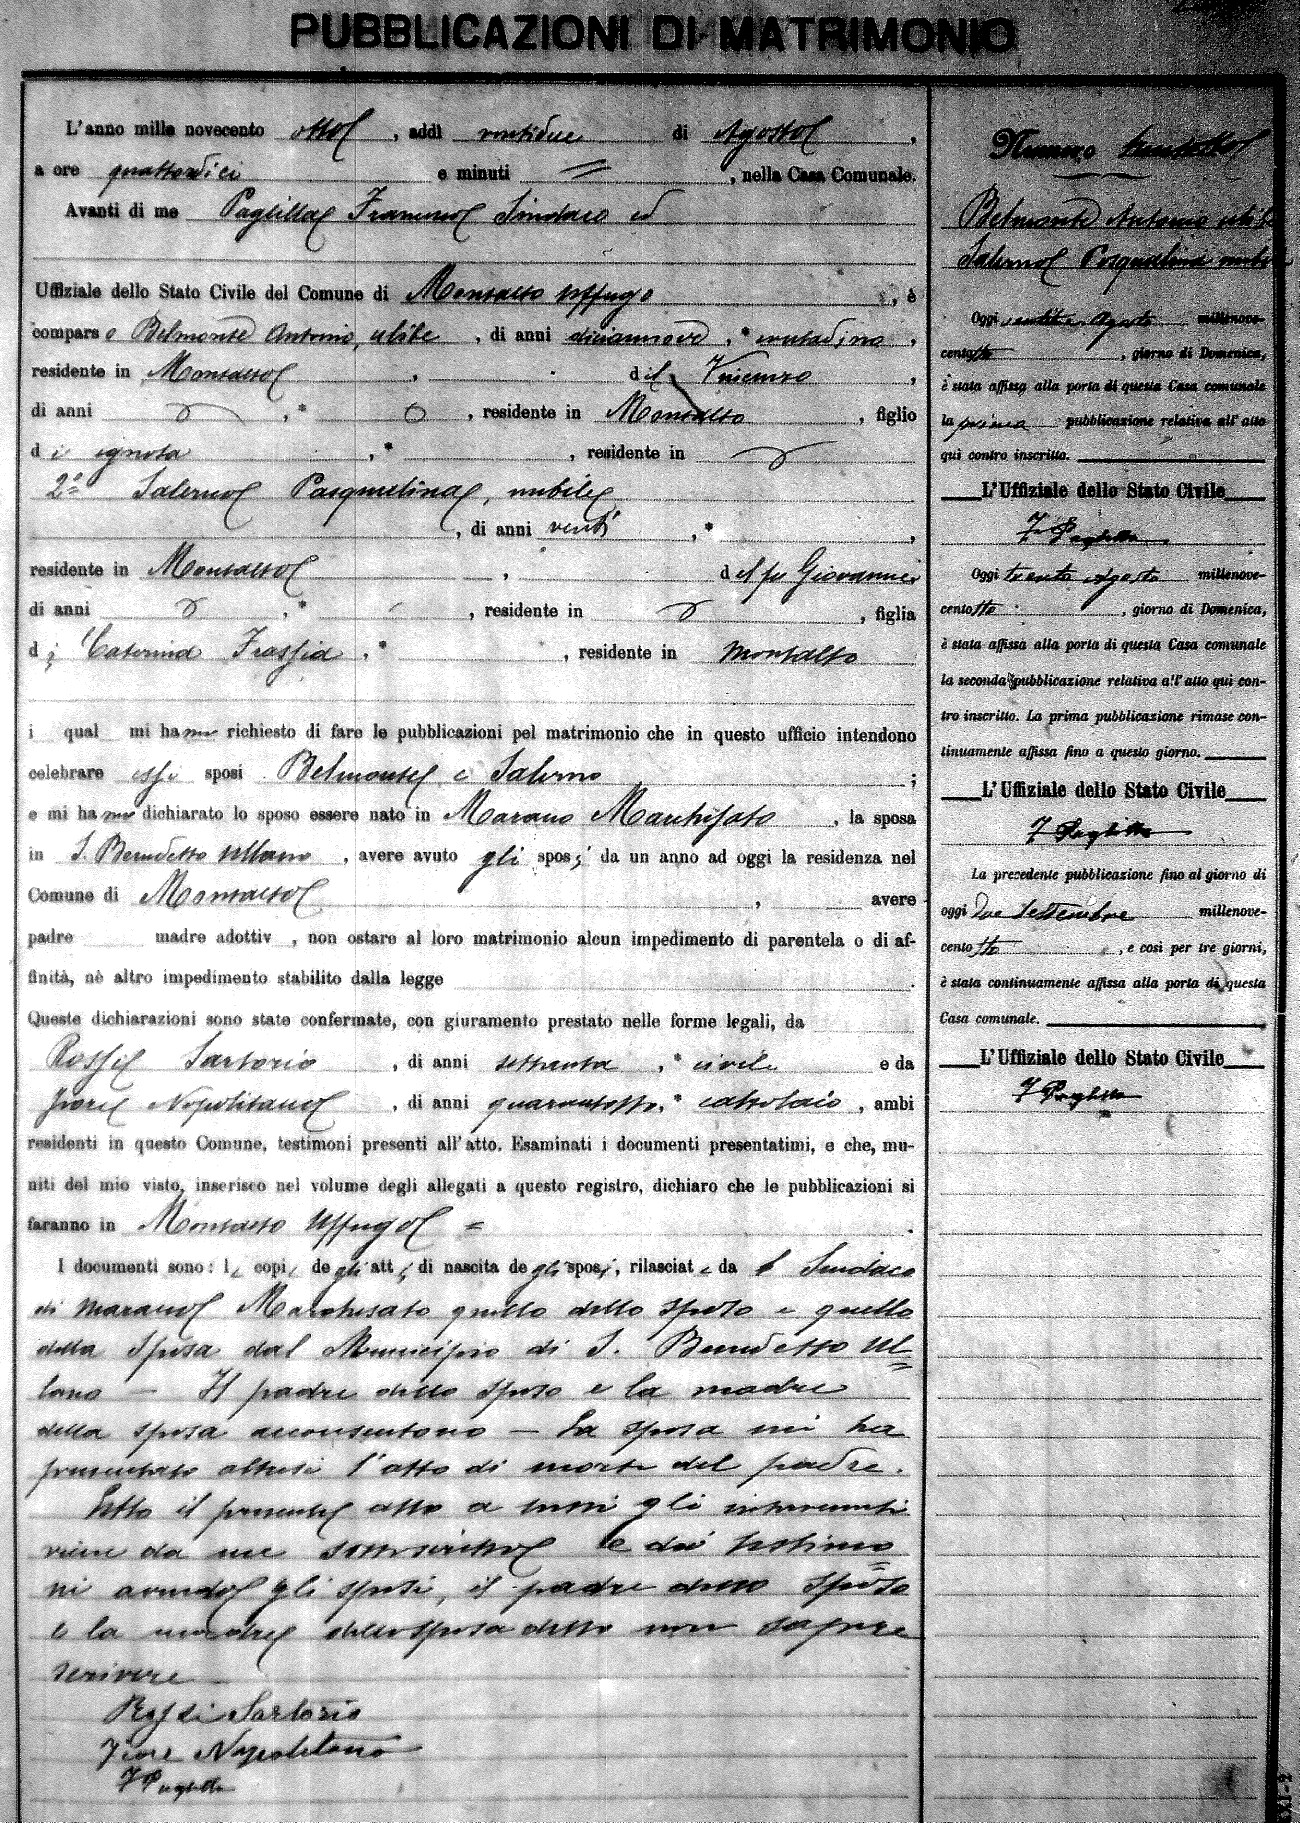 PUBBLICAZIONI DI MATRIMONIO
L'anno mille novecento otto, addì ventidue di Agosto,
a ore quattordici e minuti =, nella Casa Comunale.
Avanti di me Paglilla Francesco Sindaco ed
Uffiziale dello Stato Civile del Comune di Montalto Uffugo, è
compars o Belmonte Antonio, celibe, di anni diciannove, * contadino,
residente in Montalto, del Vincenzo,
di anni , * , residente in Montalto, figlio
d i ignota, * , residente in
2° Salerno Pasqualina, nubile
, di anni venti, * ,
residente in Montalto, del fu Giovanni
di anni , * , residente in , figlia
d i Caterina Frassia, * , residente in Montalto
i qual mi hanno richiesto di fare le pubblicazioni pel matrimonio che in questo ufficio intendono
celebrare essi sposi Belmonte e Salerno ;
e mi hanno dichiarato lo sposo essere nato in Marano Marchisato, la sposa
in S. Benedetto Ullano, avere avuto gli sposi da un anno ad oggi la residenza nel
Comune di Montalto , avere
padre madre adottiv , non ostare al loro matrimonio alcun impedimento di parentela o di af-
finità, nè altro impedimento stabilito dalla legge .
Queste dichiarazioni sono state confermate, con giuramento prestato nelle forme legali, da
Rossi Sartorio, di anni settanta, * civile e da
Fiore Napolitano, di anni quarantotto, * calzolaio, ambi
residenti in questo Comune, testimoni presenti all'atto. Esaminati i documenti presentatimi, e che, mu-
niti del mio visto, inserisco nel volume degli allegati a questo registro, dichiaro che le pubblicazioni si
faranno in Montalto Uffugo = .
I documenti sono: le copie degli atti di nascita degli sposi, rilasciate da l Sindaco
di Marano Marchisato quello dello sposo e quello
della sposa dal Municipio di S. Benedetto Ul=
lano — Il padre dello sposo e la madre
della sposa acconsentono — La sposa mi ha
presentato altresì l'atto di morte del padre.
Letto il presente atto a tutti gli intervenuti
viene da me sottoscritto e dai testimo=
ni avendo gli sposi, il padre dello sposo
e la madre della sposa detto non sapere
scrivere
Rossi Sartorio
Fiore Napolitano
F Paglilla
Numero
Belmonte Antonio celibe
Salerno Pasqualina nubile
Oggi ventitre Agosto millenove-
centotto, giorno di Domenica,
è stata affissa alla porta di questa Casa comunale
la prima pubblicazione relativa all'atto
qui contro inscritto.
L'Uffiziale dello Stato Civile
F Paglilla
Oggi trenta Agosto millenove-
centotto, giorno di Domenica,
è stata affissa alla porta di questa Casa comunale
la seconda pubblicazione relativa all'atto qui con-
tro inscritto. La prima pubblicazione rimase con-
tinuamente affissa fino a questo giorno.
L'Uffiziale dello Stato Civile
F Paglilla
La precedente pubblicazione fino al giorno di
oggi due Settembre millenove-
centotto, e così per tre giorni,
è stata continuamente affissa alla porta di questa
Casa comunale.
L'Uffiziale dello Stato Civile
F Paglilla